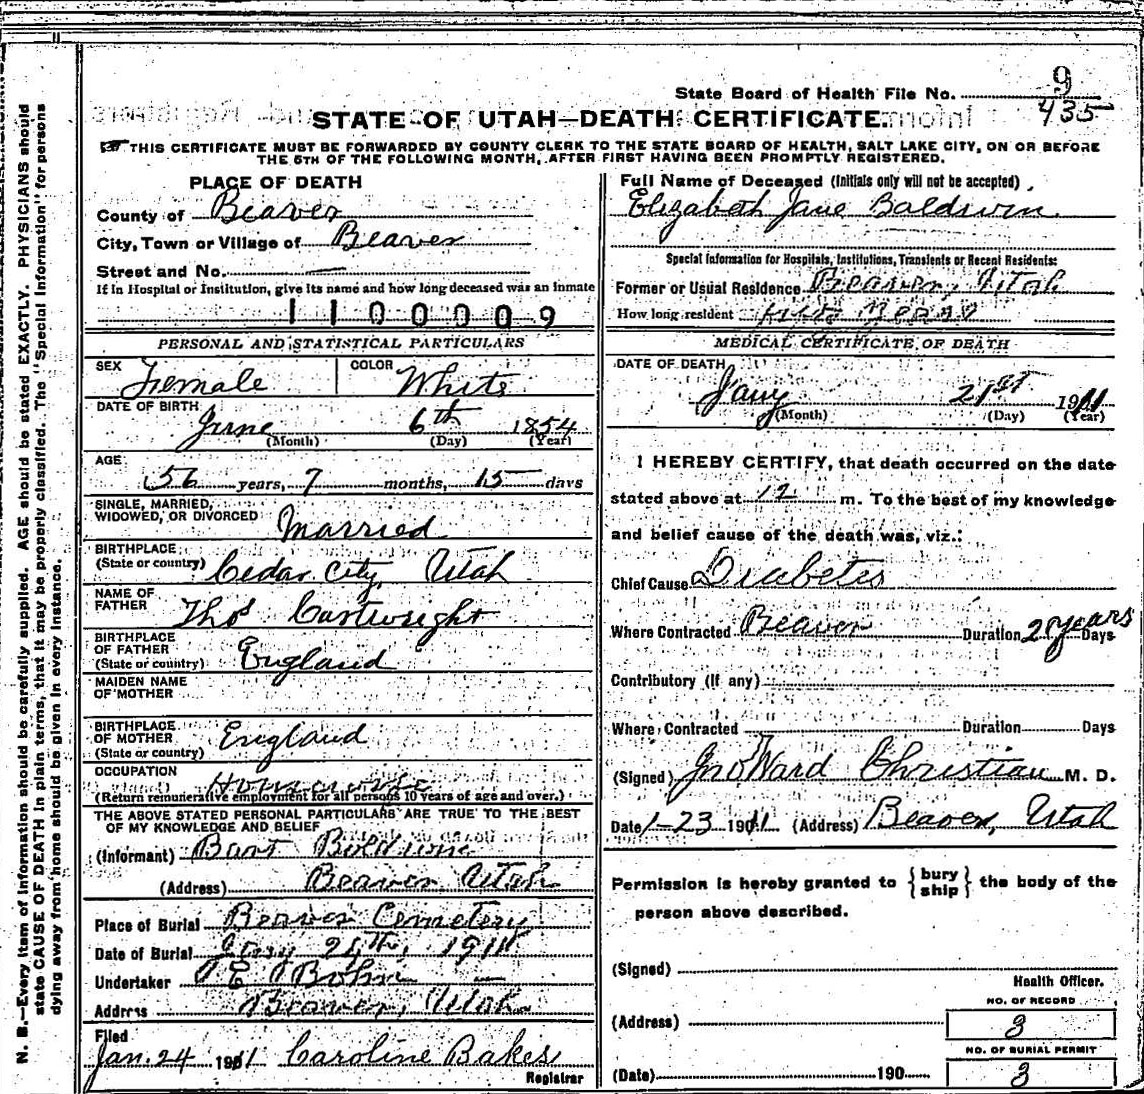 State Board of Health File No. 9
435
STATE OF UTAH—DEATH CERTIFICATE.
THIS CERTIFICATE MUST BE FORWARDED BY COUNTY CLERK TO THE STATE BOARD OF HEALTH, SALT LAKE CITY, ON OR BEFORE
THE 5TH OF THE FOLLOWING MONTH, AFTER FIRST HAVING BEEN PROMPTLY REGISTERED.
PLACE OF DEATH
County of Beaver
City, Town or Village of Beaver
Street and No. —
If in Hospital or Institution, give its name and how long deceased was an inmate
1100009
PERSONAL AND STATISTICAL PARTICULARS
SEX Female COLOR White
DATE OF BIRTH
June 6th 1854
(Month) (Day) (Year)
AGE
56 years, 7 months, 15 days
SINGLE, MARRIED,
WIDOWED, OR DIVORCED Married
BIRTHPLACE
(State or country) Cedar City, Utah
NAME OF
FATHER Thos Cartwright
BIRTHPLACE
OF FATHER
(State or country) England
MAIDEN NAME
OF MOTHER
BIRTHPLACE
OF MOTHER
(State or country) England
OCCUPATION Housewife
(Return remunerative employment for all persons 10 years of age and over.)
THE ABOVE STATED PERSONAL PARTICULARS ARE TRUE TO THE BEST
OF MY KNOWLEDGE AND BELIEF
(Informant) Bart
(Address) Beaver Utah
Place of Burial Beaver Cemetery
Date of Burial 1911
Undertaker
Address Beaver, Utah
Filed
Jan. 24 1911 Caroline Baker
Registrar
Full Name of Deceased (Initials only will not be accepted)
Elizabeth Jane Baldwin
Special Information for Hospitals, Institutions, Transients or Recent Residents:
Former or Usual Residence Beaver, Utah
How long resident years
MEDICAL CERTIFICATE OF DEATH
DATE OF DEATH
Jany 21st 1911
(Month) (Day) (Year)
I HEREBY CERTIFY, that death occurred on the date
stated above at 12 m. To the best of my knowledge
and belief cause of the death was, viz.:
Chief Cause Diabetes
Where Contracted Beaver Duration 2 years Days
Contributory (if any)
Where Contracted Duration Days
(Signed) Jno Ward Christian M. D.
Date 1-23 1911 (Address) Beaver, Utah
Permission is hereby granted to { bury ship } the body of the
person above described.
(Signed)
Health Officer.
(Address)
NO. OF RECORD
3
(Date) 190
NO. OF BURIAL PERMIT
3
N. B.—Every item of information should be carefully supplied. AGE should be stated EXACTLY. PHYSICIANS should
state CAUSE OF DEATH in plain terms, that it may be properly classified. The "Special Information" for persons
dying away from home should be given in every instance.